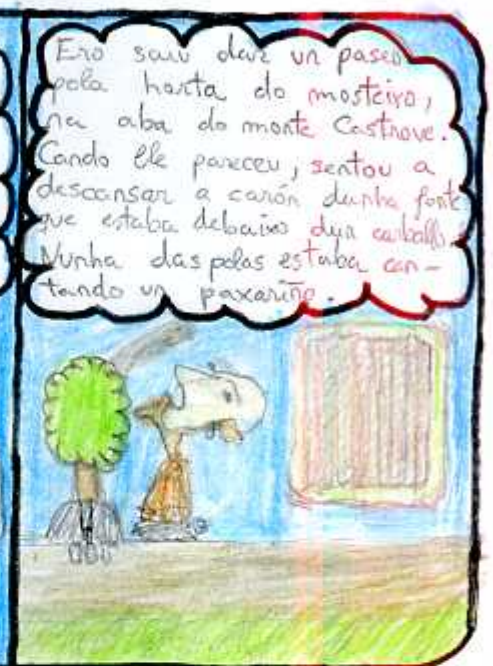 Ero saiu dar un paseo
pola horta do mosteiro,
na aba do monte Castrove.
Cando lle pareceu, sentou a
descansar a carón dunha fonte
que estaba debaixo dun carballo.
Nunha das polas estaba can-
tando un paxariño.